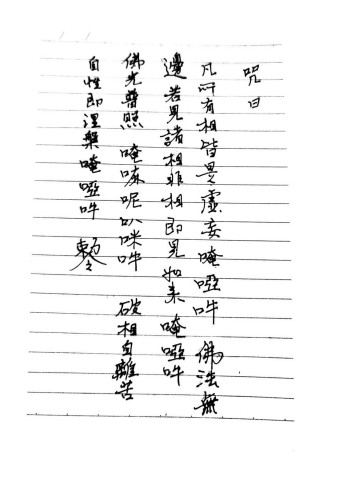 咒曰
凡所有相皆是虛妄唵啞吽 佛法無
邊若見諸相非相即見如来 唵啞吽
佛光普照 唵嘛呢叭咪吽 破相自離苦
自性即涅槃唵啞吽